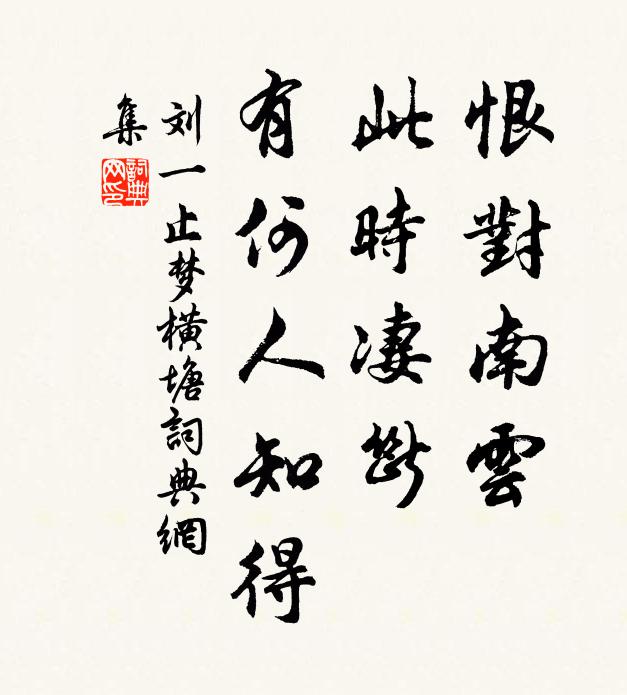 恨對南雲
此時凄斷
有何人知得
刘一止梦橫塘詞典網
集
詞典
网印